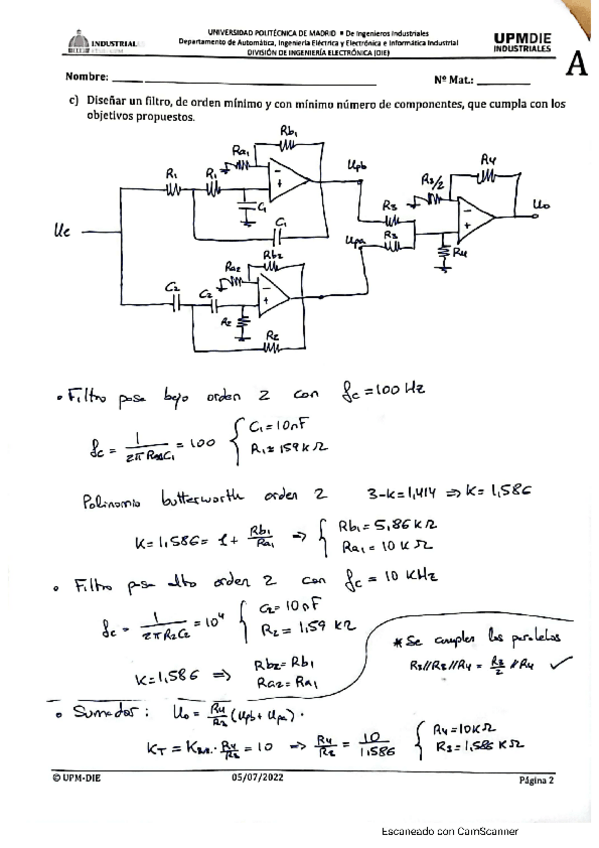 UNIVERSIDAD POLITÉCNICA DE MADRID ■ De Ingenieros Industriales
Departamento de Automática, Ingeniería Eléctrica y Electrónica e Informática Industrial
DIVISIÓN DE INGENIERÍA ELECTRÓNICA (DIE)
INDUSTRIAL
UPMDIE
INDUSTRIALES
A
Nombre:
Nº Mat.:
c) Diseñar un filtro, de orden mínimo y con mínimo número de componentes, que cumpla con los
objetivos propuestos.
Rb1
Ra1
R1
R1
C1
C1
Upb
R3/2
R4
Uo
Ue
R3
R3
R4
Upa
Rb2
Ra2
C2
C2
R2
R2
• Filtro pasa bajo orden 2 con fc = 100 Hz
fc = 1/(2π R1 C1) = 100 { C1 = 10nF
R1 = 159 kΩ
Polinomio butterworth orden 2 3-k = 1,414 => k = 1,586
K = 1,586 = 1 + Rb1/Ra1 => { Rb1 = 5,86 kΩ
Ra1 = 10 kΩ
• Filtro pasa alto orden 2 con fc = 10 KHz
fc = 1/(2π R2 C2) = 10⁴ { C2 = 10nF
R2 = 1,59 kΩ
K = 1,586 => Rb2 = Rb1
Ra2 = Ra1
* Se cumplen los paralelos
R3//R3//R4 = R3/2 // R4 ✓
• Sumador: Uo = R4/R3 (Upb + Upa).
KT = K · R4/R3 = 10 => R4/R3 = 10/1,586 { R4 = 10kΩ
R3 = 1,586 kΩ
© UPM-DIE
05/07/2022
Página 2
Escaneado con CamScanner